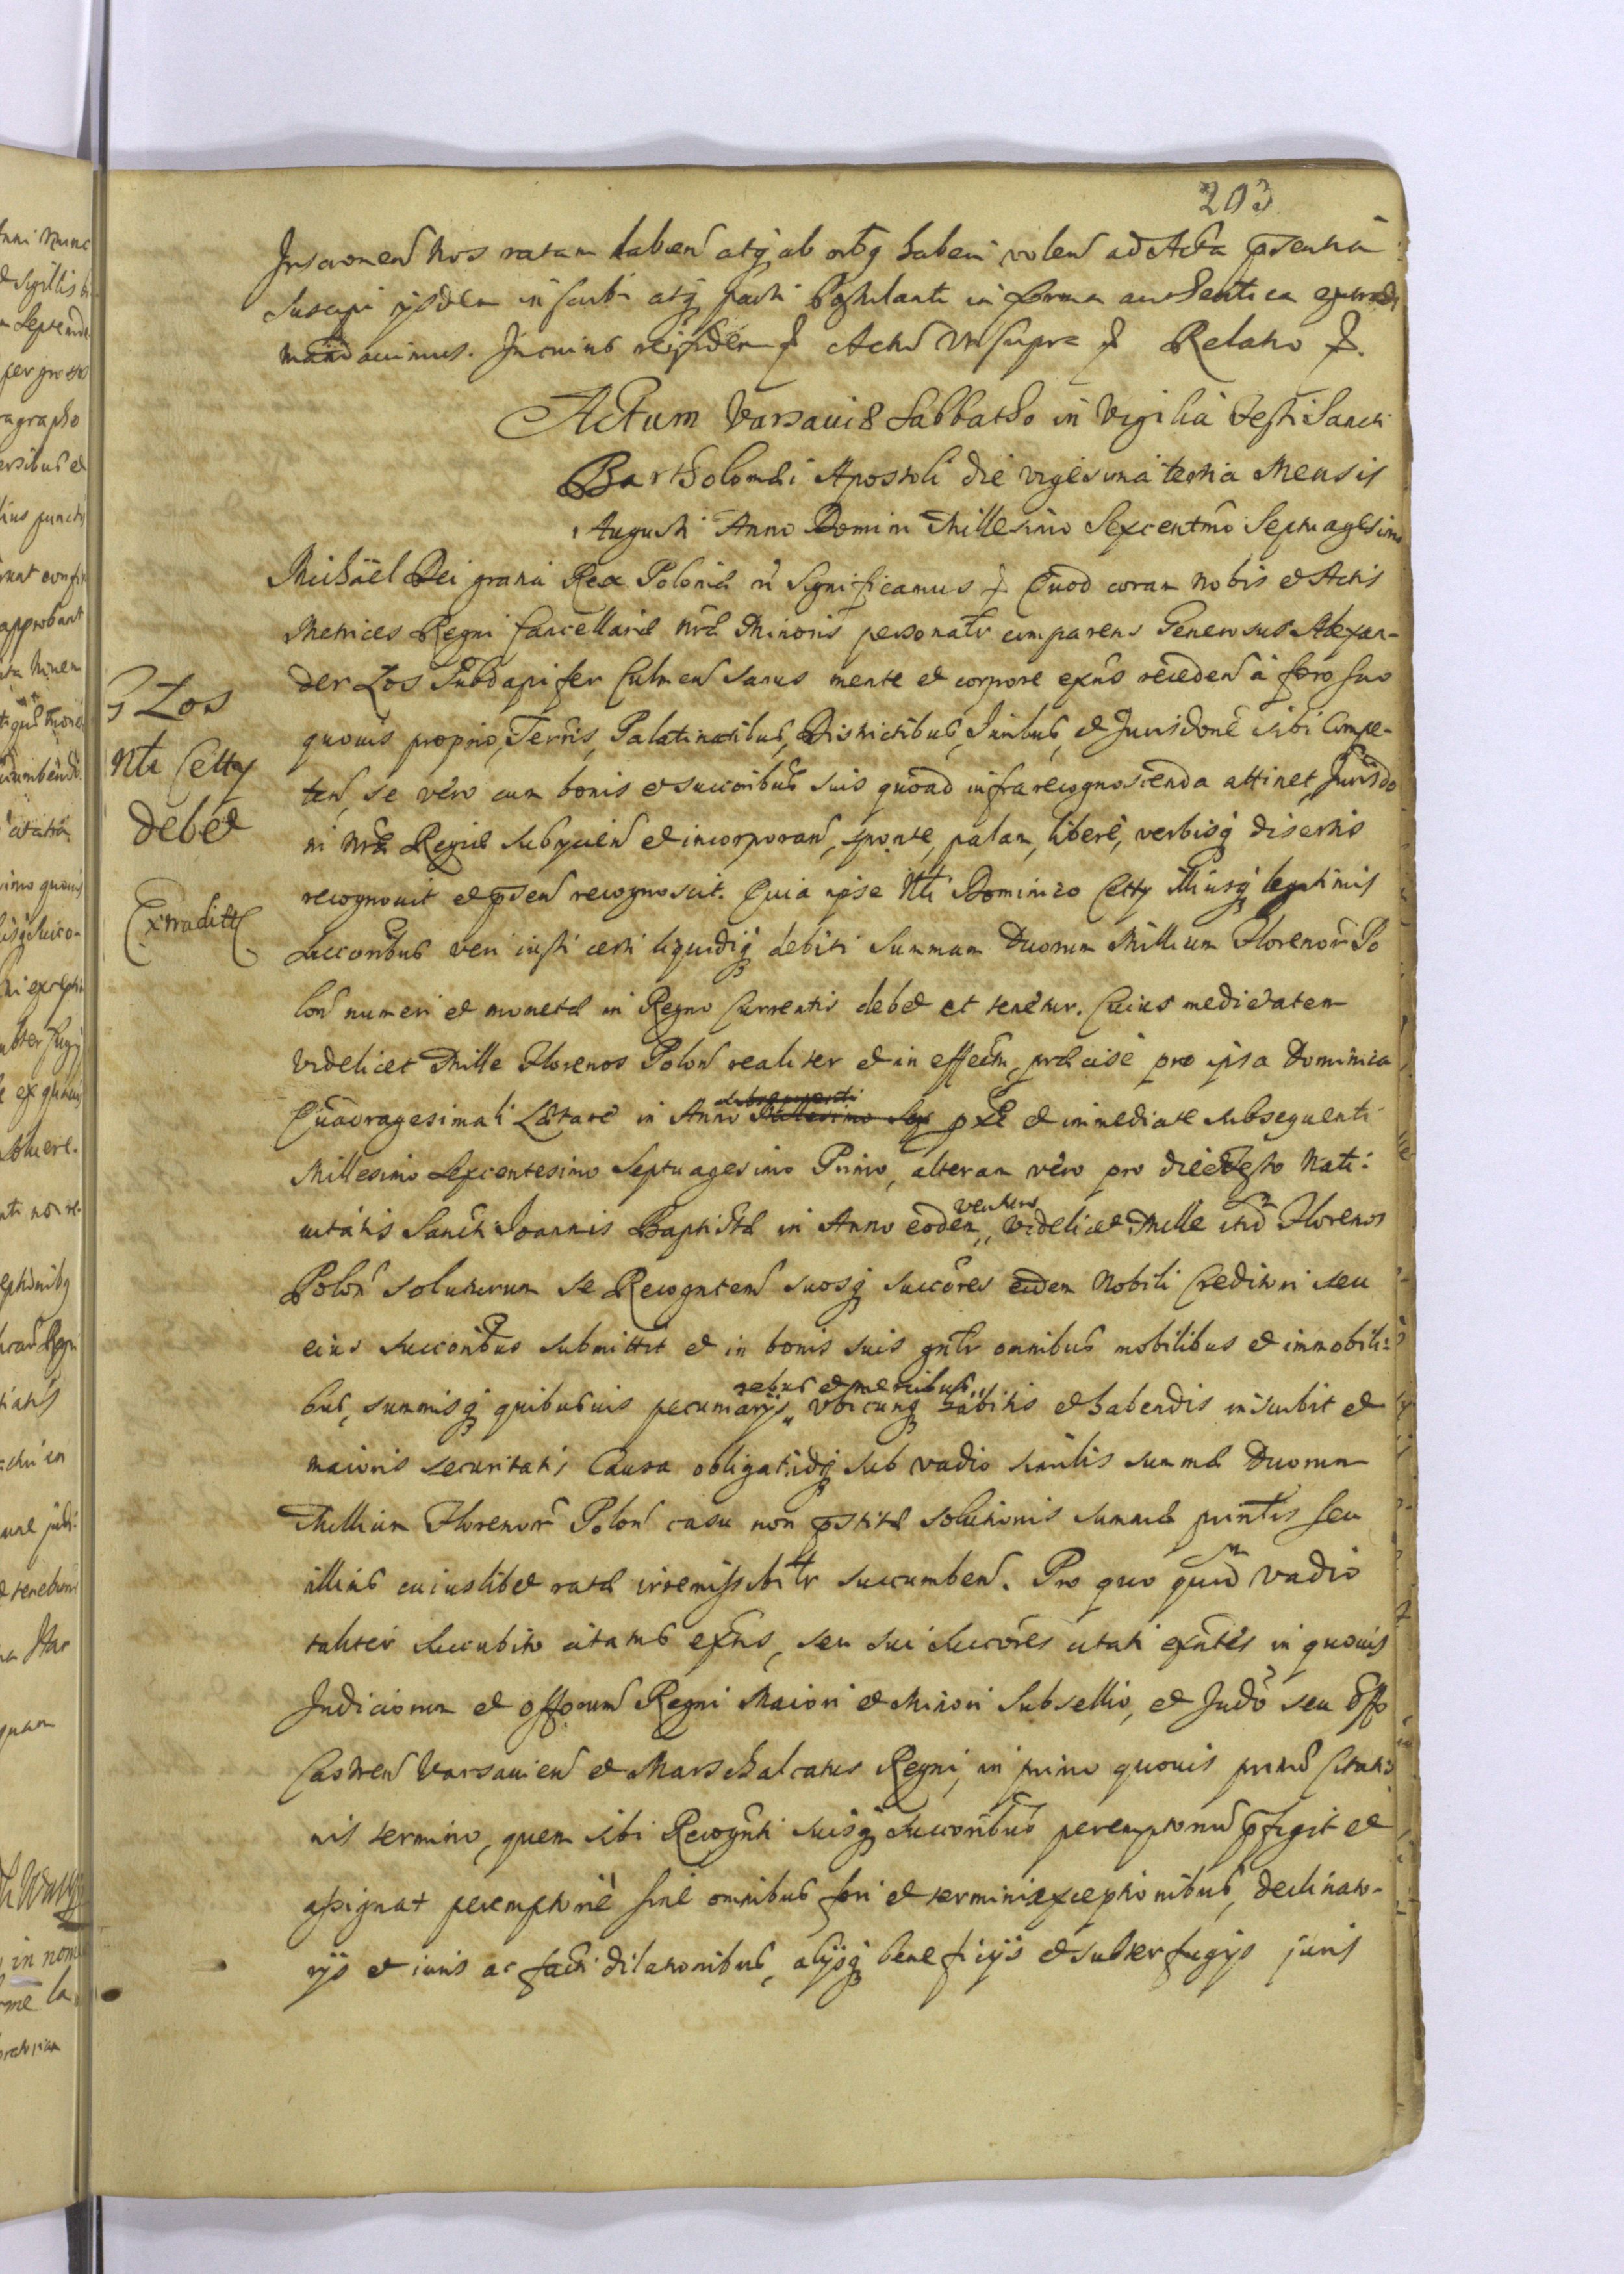 203
Inscripnem̄ Nos ratam habem̄ atq̨ ab oibq̨ haberi volen̄ ad Acta p̄sentia
suscipi ijsdem inscribi atq̨ parti Postulanti in forma authentica extradi
mandauimus. In cuius rei fidem Actum Vt supra Relatio
Actum Varsauiæ Sabbatho in Vigilia Festi Sancti
Bartholomæi Apostoli die vigesima tertia Mensis
Augusti Anno Domini Millesimo Sexcentmo Septuagesimo
Michäel Dei gratia Rex Poloniæ Significamus Quod coram Nobis et Actis
Metrices Regni Cancellariæ nr̄æ Minoris personalr̄ comparens Generosus Alexan-
der Łos Subdapifer Culmen̄ sanus mente et corpore exn̄s receden̄ à foro suo
quouis proprio, Terris, Palatinatibus, Districtibus, Iuribus, et Jurisdone sibi Compe-
ten̄ se vero cum bonis et succoribus suis quoad infra recognoscenda attinet, Jurisdo
ni nr̄æ Regiæ subijcien̄ et incorporan̄, sponte, palam, liberè, verbisq̨ disertis
recognouit et p̄sen̄ recognoscit. Quia ipse Nbli Dominico Cetty illiusq̨ legitimis
Succoribus veri iusti certi liquidiq̨ debiti Summam Duorum Millium Florenor̄ Po
lon̄ numeri et monetæ in Regno Currentis debet et tenetur. Cuius medietatem
videlicet Mille Florenos Polon̄ realiter et in effectu, præcisè pro ipsa Dominica
Quadragesimali Lætare in Anno Millesimo Sex p̄xē et immediate subsequenti
Millesimo Sexcentesimo Septuagesimo Primo, alteram vero pro die Festo Nati:
uitatis Sancti Joannis Baptistæ in Anno eodem venturo videlicet Mille itid̄ Florenos
Polon̄ soluturum se Recognten̄ suosq̨ succores eidem Nobili Creditori seu
eius succoribus submittit et in bonis suis gnlr̄ omnibus mobilibus et immobili:
bus, summisq̨ quibusuis pecuniarijs rebus et mercibus vbicunq̨ habitis et habendis inscribit et
maioris securitatis Causa obligat, idq̨ sub vadio similis summæ Duorum
Millium Florenor̄ Polon̄ casu non p̄stitæ solutionis summæ printis seu
illius cuiuslibet ratæ irremissibilr̄ succumben̄. Pro quo quid̄ Vadio
taliter succubito citatus exn̄s, seu sui succores citati exn̄tes in quouis
Judiciorum et offorum Regni Maiori et Minori Subsellio, et Judo seu Offo
Castren̄ Varsauien̄ et Marschalcatus Regni, in primo quouis primæ Citatio
nis termino, quem sibi Recognti suisq̨ succoribus peremptorium p̄figit et
assignat peremptoriè sine omnibus fori et termini exceptionibus, declinato-
rijs et iuris ac facti dilationibus, alijsq̨ beneficijs et subterfugijs juris
G Łos
Nbli Cetty
debet
Extradit